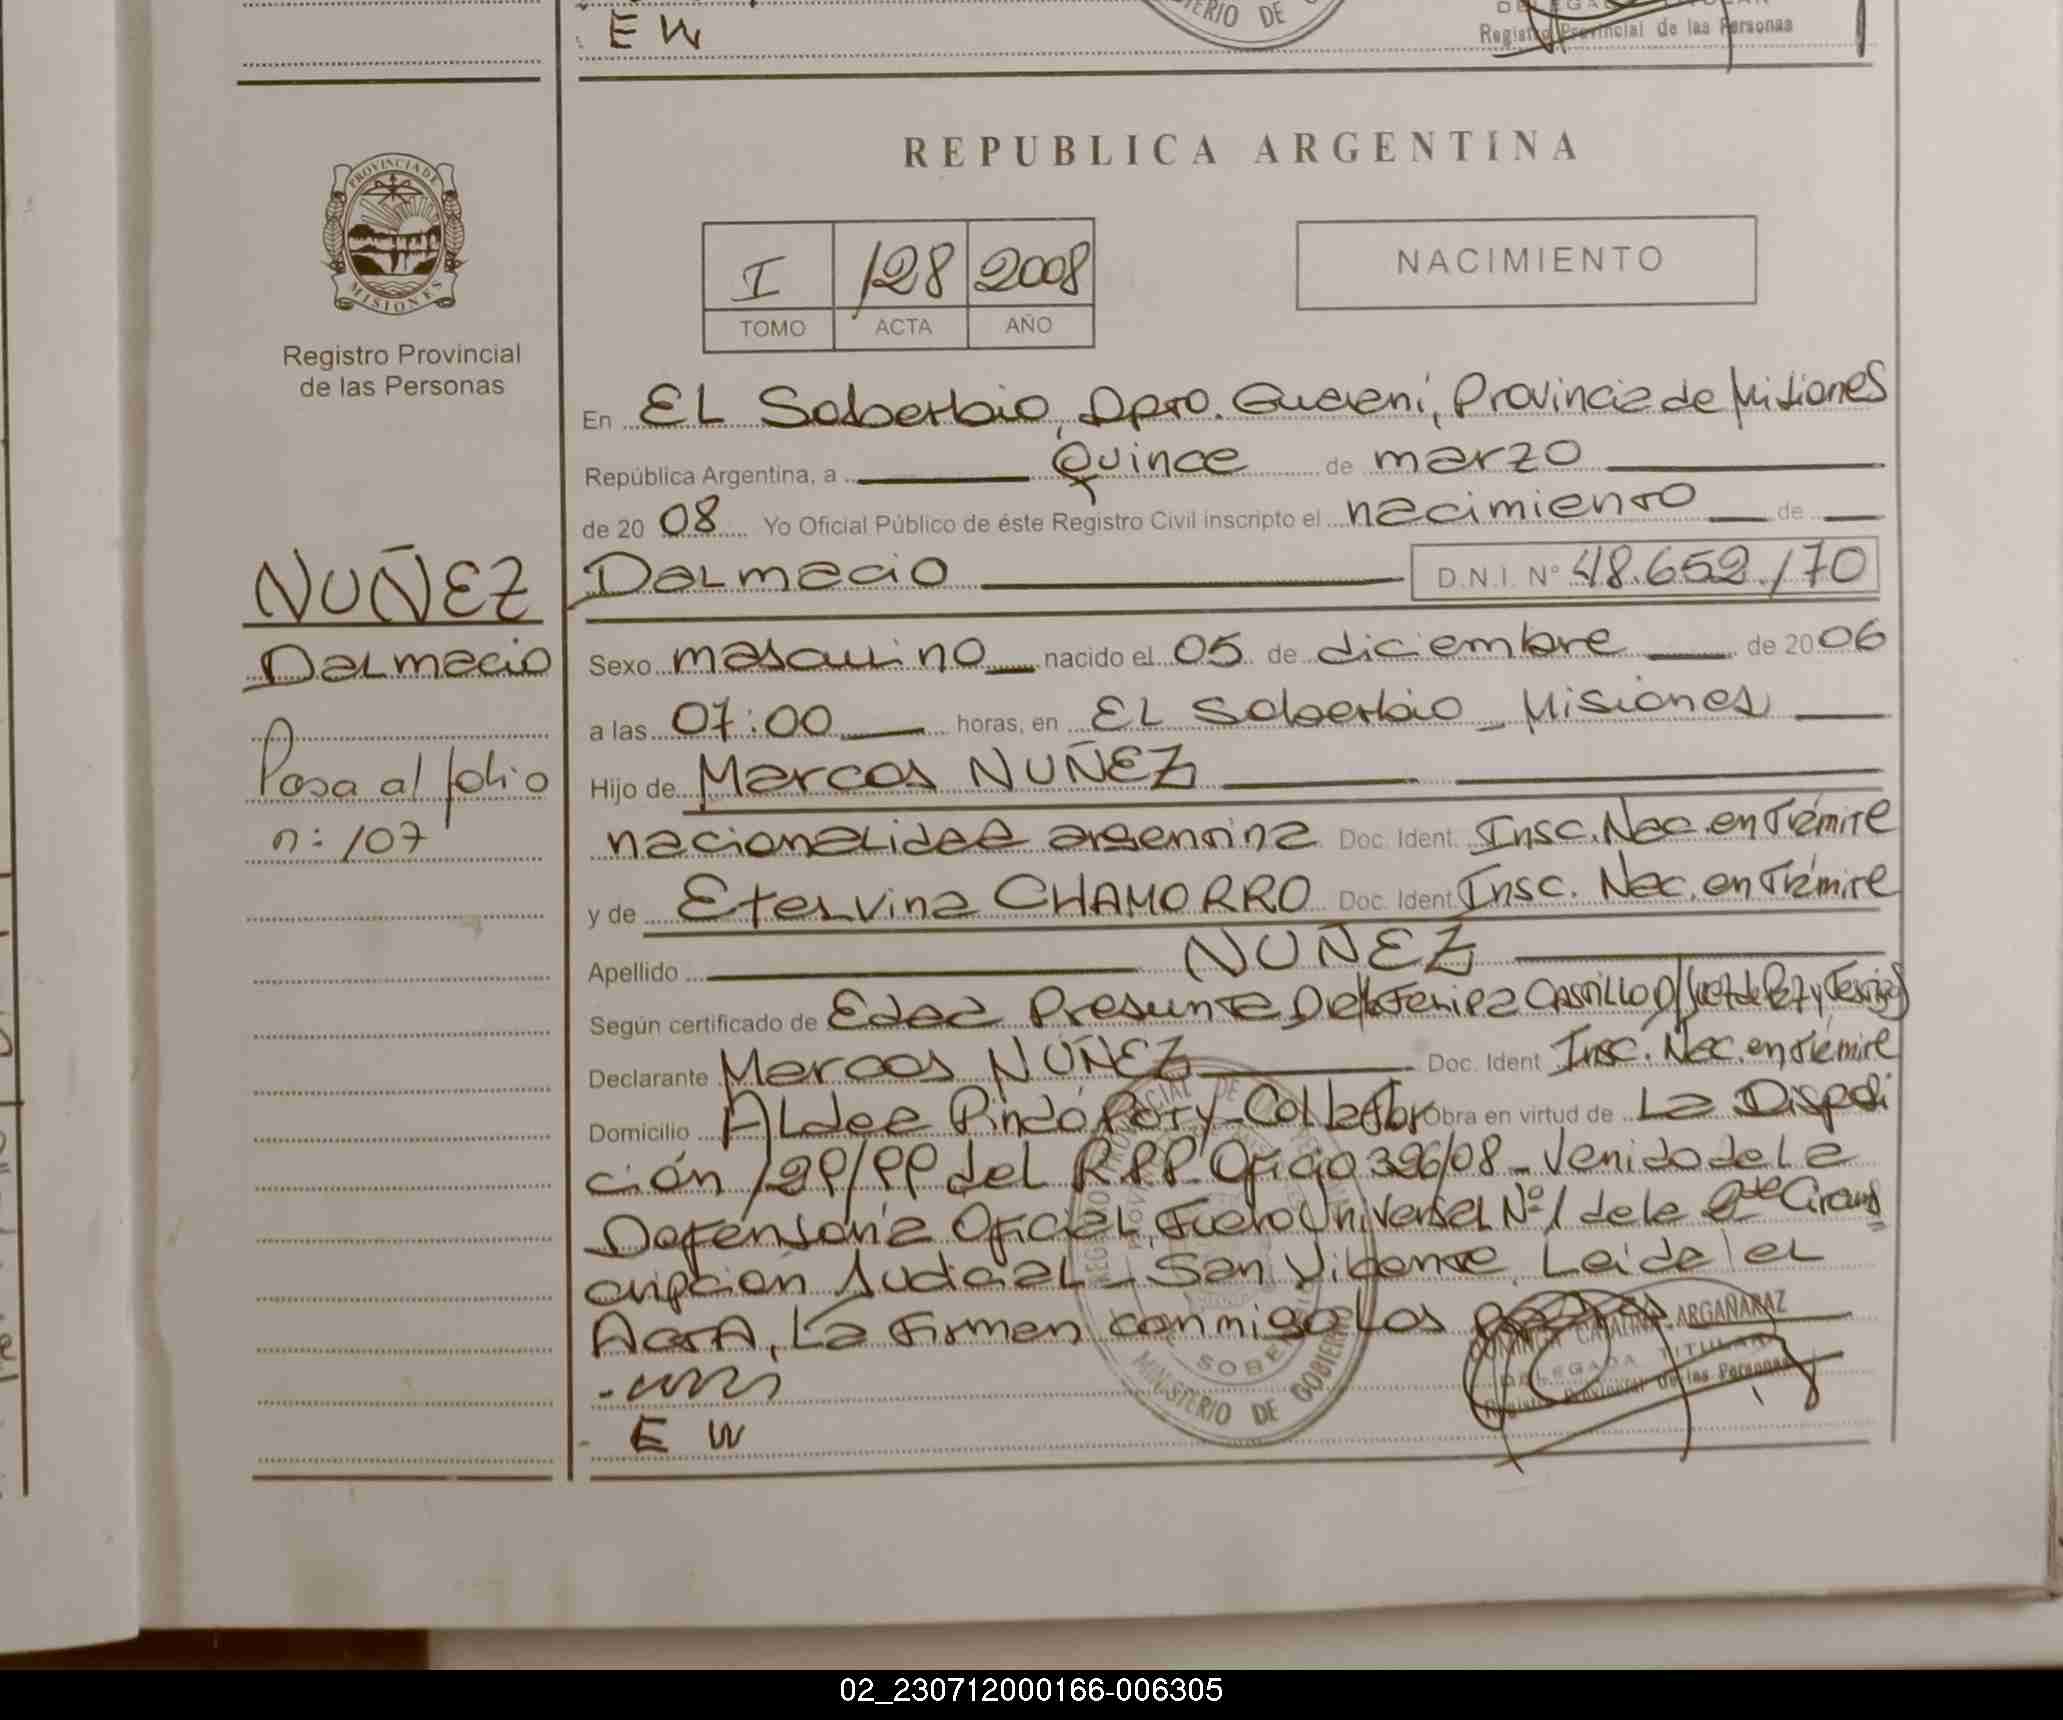 E W
MINISTERIO DE
Registro Provincial de las Personas
PROVINCIA DE
MISIONES
Registro Provincial
de las Personas
REPUBLICA ARGENTINA
I 128 2008
TOMO ACTA AÑO
NACIMIENTO
En EL Soberbio, Dpto. Guaraní, Provincia de Misiones
República Argentina, a Quince de marzo
de 20 08 Yo Oficial Público de éste Registro Civil inscripto el nacimiento de
Dalmacio D.N.I. Nº 48.652.170
NUÑEZ
Dalmacio
Pasa al folio
n: 107
Sexo masculino nacido el 05 de diciembre de 2006
a las 07:00 horas, en EL Soberbio - Misiones
Hijo de Marcos NUÑEZ
nacionalidad argentina Doc. Ident. Insc. Nac. en Trámite
y de Etelvina CHAMORRO Doc. Ident. Insc. Nac. en Trámite
Apellido NUÑEZ
Según certificado de Edad Presunta CASTILLO Juez de Paz y Testigos
Declarante Marcos NUÑEZ Doc. Ident Insc. Nac. en Trámite
Domicilio Aldea Pindó Poty - Obra en virtud de La Disposi
ción del R.P.P. Oficio 396/08 - Venido de la
Defensoría Oficial, Fuero Universal Nº 1 de la 2da Circuns
cripción Judicial - San Vicente. Leída el
Acta, La Firman conmigo Los
ARGAÑARAZ
DELEGADA TITULAR
Registro Provincial de las Personas
MINISTERIO DE GOBIERNO
E W
02_230712000166-006305